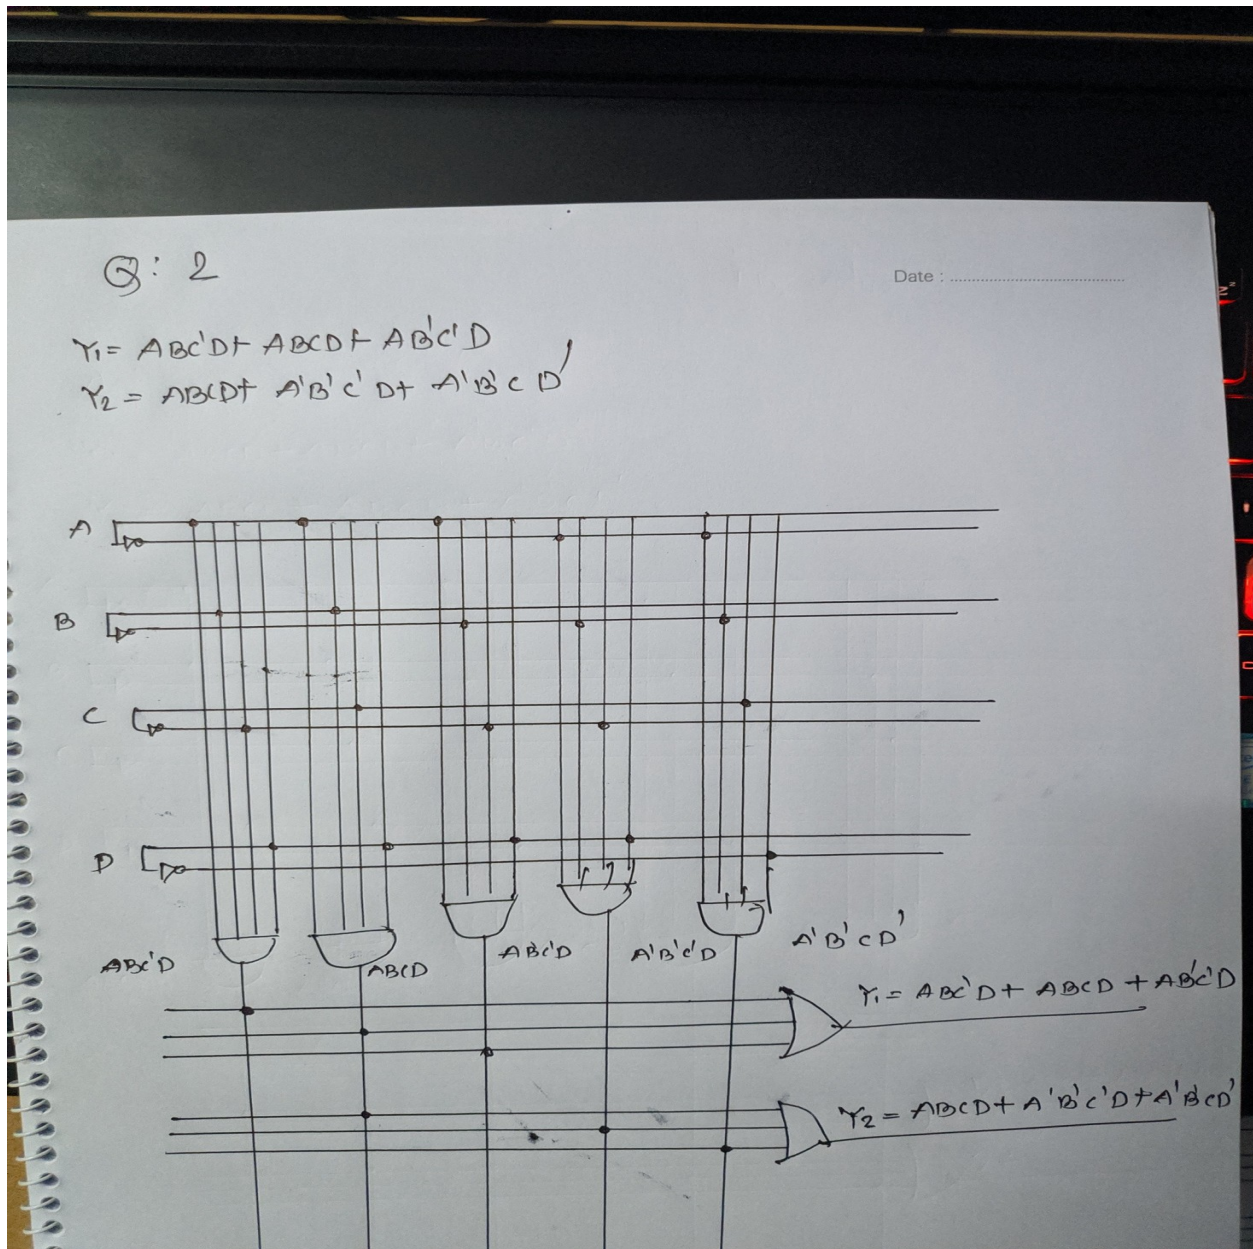 Q: 2
Date :
Y₁= ABC'D+ ABCD+ AB'C'D
Y₂= ABCD+ A'B'C'D+ A'B'CD'
A
B
C
D
ABC'D
ABCD
ABC'D
A'B'C'D
A'B'CD'
Y₁= ABC'D+ ABCD+AB'C'D
Y₂= ABCD+A'B'C'D+A'B'CD'